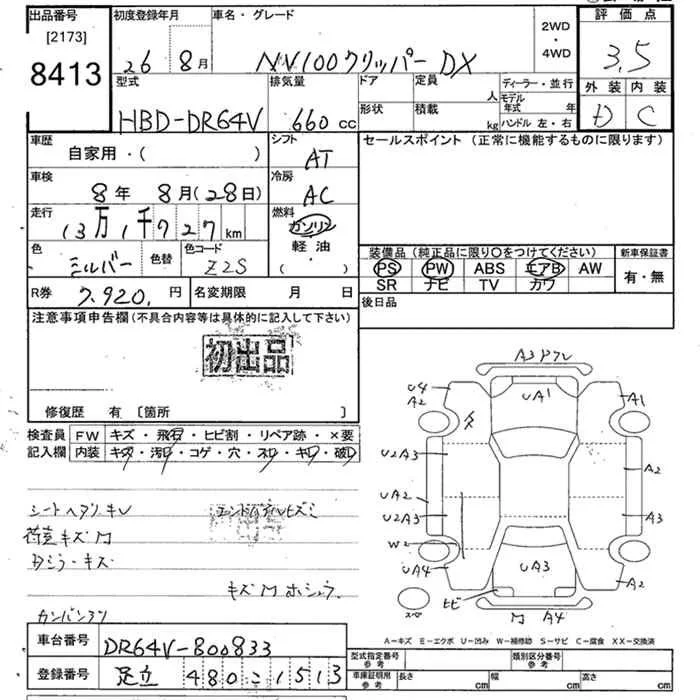 出品番号
[2173]
8413
初度登録年月
26 8月
車名・グレード
NV100クリッパー DX
2WD
・
4WD
評価点
3.5
外装 内装
D C
型式
HBD-DR64V
排気量
660 cc
ドア
形状
定員
人
積載
kg
ディーラー・並行
モデル年式 年
ハンドル 左・右
車歴
自家用・( )
シフト
AT
セールスポイント (正常に機能するものに限ります)
車検
8年 8月(28日)
冷房
AC
走行
13万1千727km
燃料
ガソリン
軽油・
( )
色
シルバー
色替
色コード
Z2S
装備品 (純正品に限り〇をつけてください)
PS PW ABS エアB AW
SR ナビ TV カワ
新車保証書
有・無
R券
7.920.円
名変期限 月 日
後日品
注意事項申告欄(不具合内容等は具体的に記入して下さい)
初出品
修復歴 有 [箇所 ]
検査員 FW キズ・飛石・ヒビ割・リペア跡・×要
記入欄 内装 キズ・汚レ・コゲ・穴・スレ・キレ・破レ
キズ
A3
U4
A2
UA1
A1
U2A3
A2
UA2
U2A3
A3
W2
UA4
UA3
A2
ヒビ
A4
A-キズ E-エクボ U-凹み W-補修跡 S-サビ C-腐食 XX-交換済
車台番号
DR64V-800833
登録番号
足立 480 こ 1513
型式指定番号
参考
類別区分番号
参考
車庫証明用
参考
長さ cm
幅 cm
高さ cm